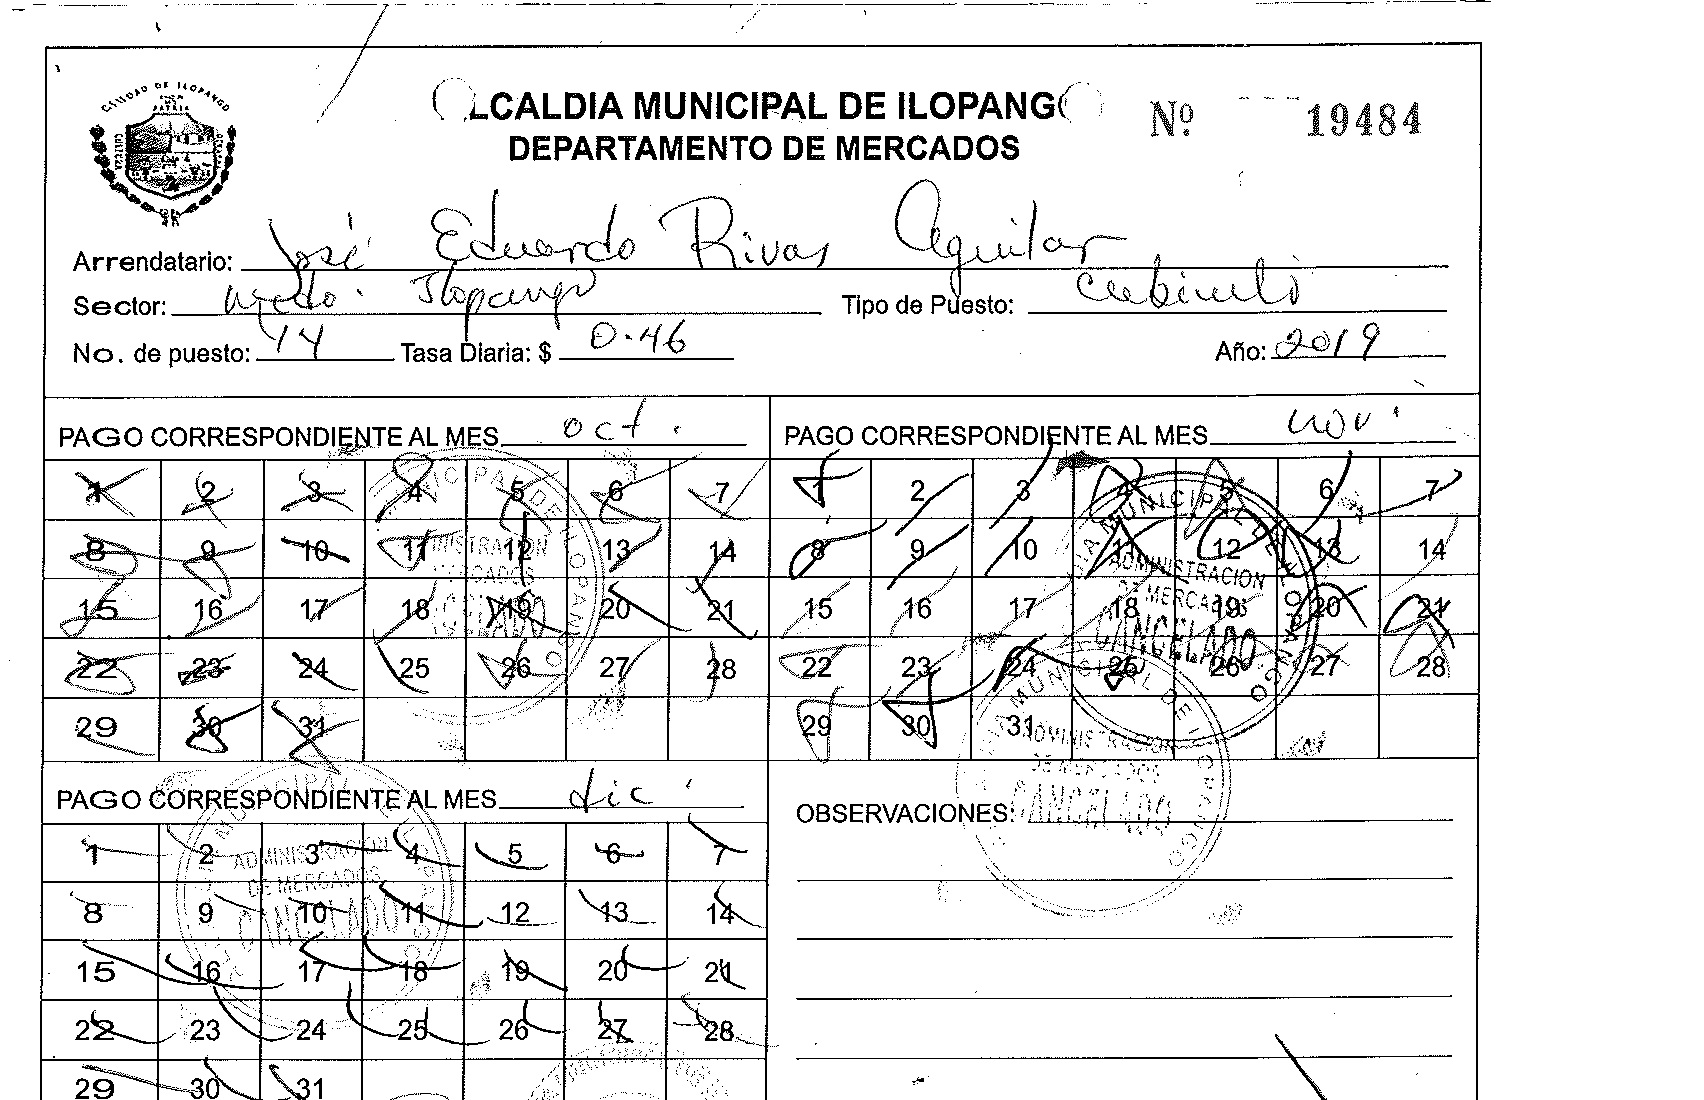 CIUDAD DE ILOPANGO
LCALDIA MUNICIPAL DE ILOPANG
Nº 19484
DEPARTAMENTO DE MERCADOS
Arrendatario: José Eduardo Rivas Aguilar
Sector: Mcdo. Ilopango Tipo de Puesto: Cubiculo
No. de puesto: 14 Tasa Diaria: $ 0.46 Año: 2019
PAGO CORRESPONDIENTE AL MES oct.
1 2 3 4 5 6 7
8 9 10 11 12 13 14
15 16 17 18 19 20 21
22 23 24 25 26 27 28
29 30 31
MUNICIPAL DE ILOPANGO
ADMINISTRACION
DE MERCADOS
CANCELADO
PAGO CORRESPONDIENTE AL MES nov.
1 2 3 4 5 6 7
8 9 10 11 12 13 14
15 16 17 18 19 20 21
22 23 24 25 26 27 28
29 30 31
MUNICIPAL DE ILOPANGO
ADMINISTRACION
DE MERCADOS
CANCELADO
PAGO CORRESPONDIENTE AL MES dic.
1 2 3 4 5 6 7
8 9 10 11 12 13 14
15 16 17 18 19 20 21
22 23 24 25 26 27 28
29 30 31
ADMINISTRACION
DE MERCADOS
CANCELADO
OBSERVACIONES:
MUNICIPAL DE ILOPANGO
ADMINISTRACION
DE MERCADOS
CANCELADO